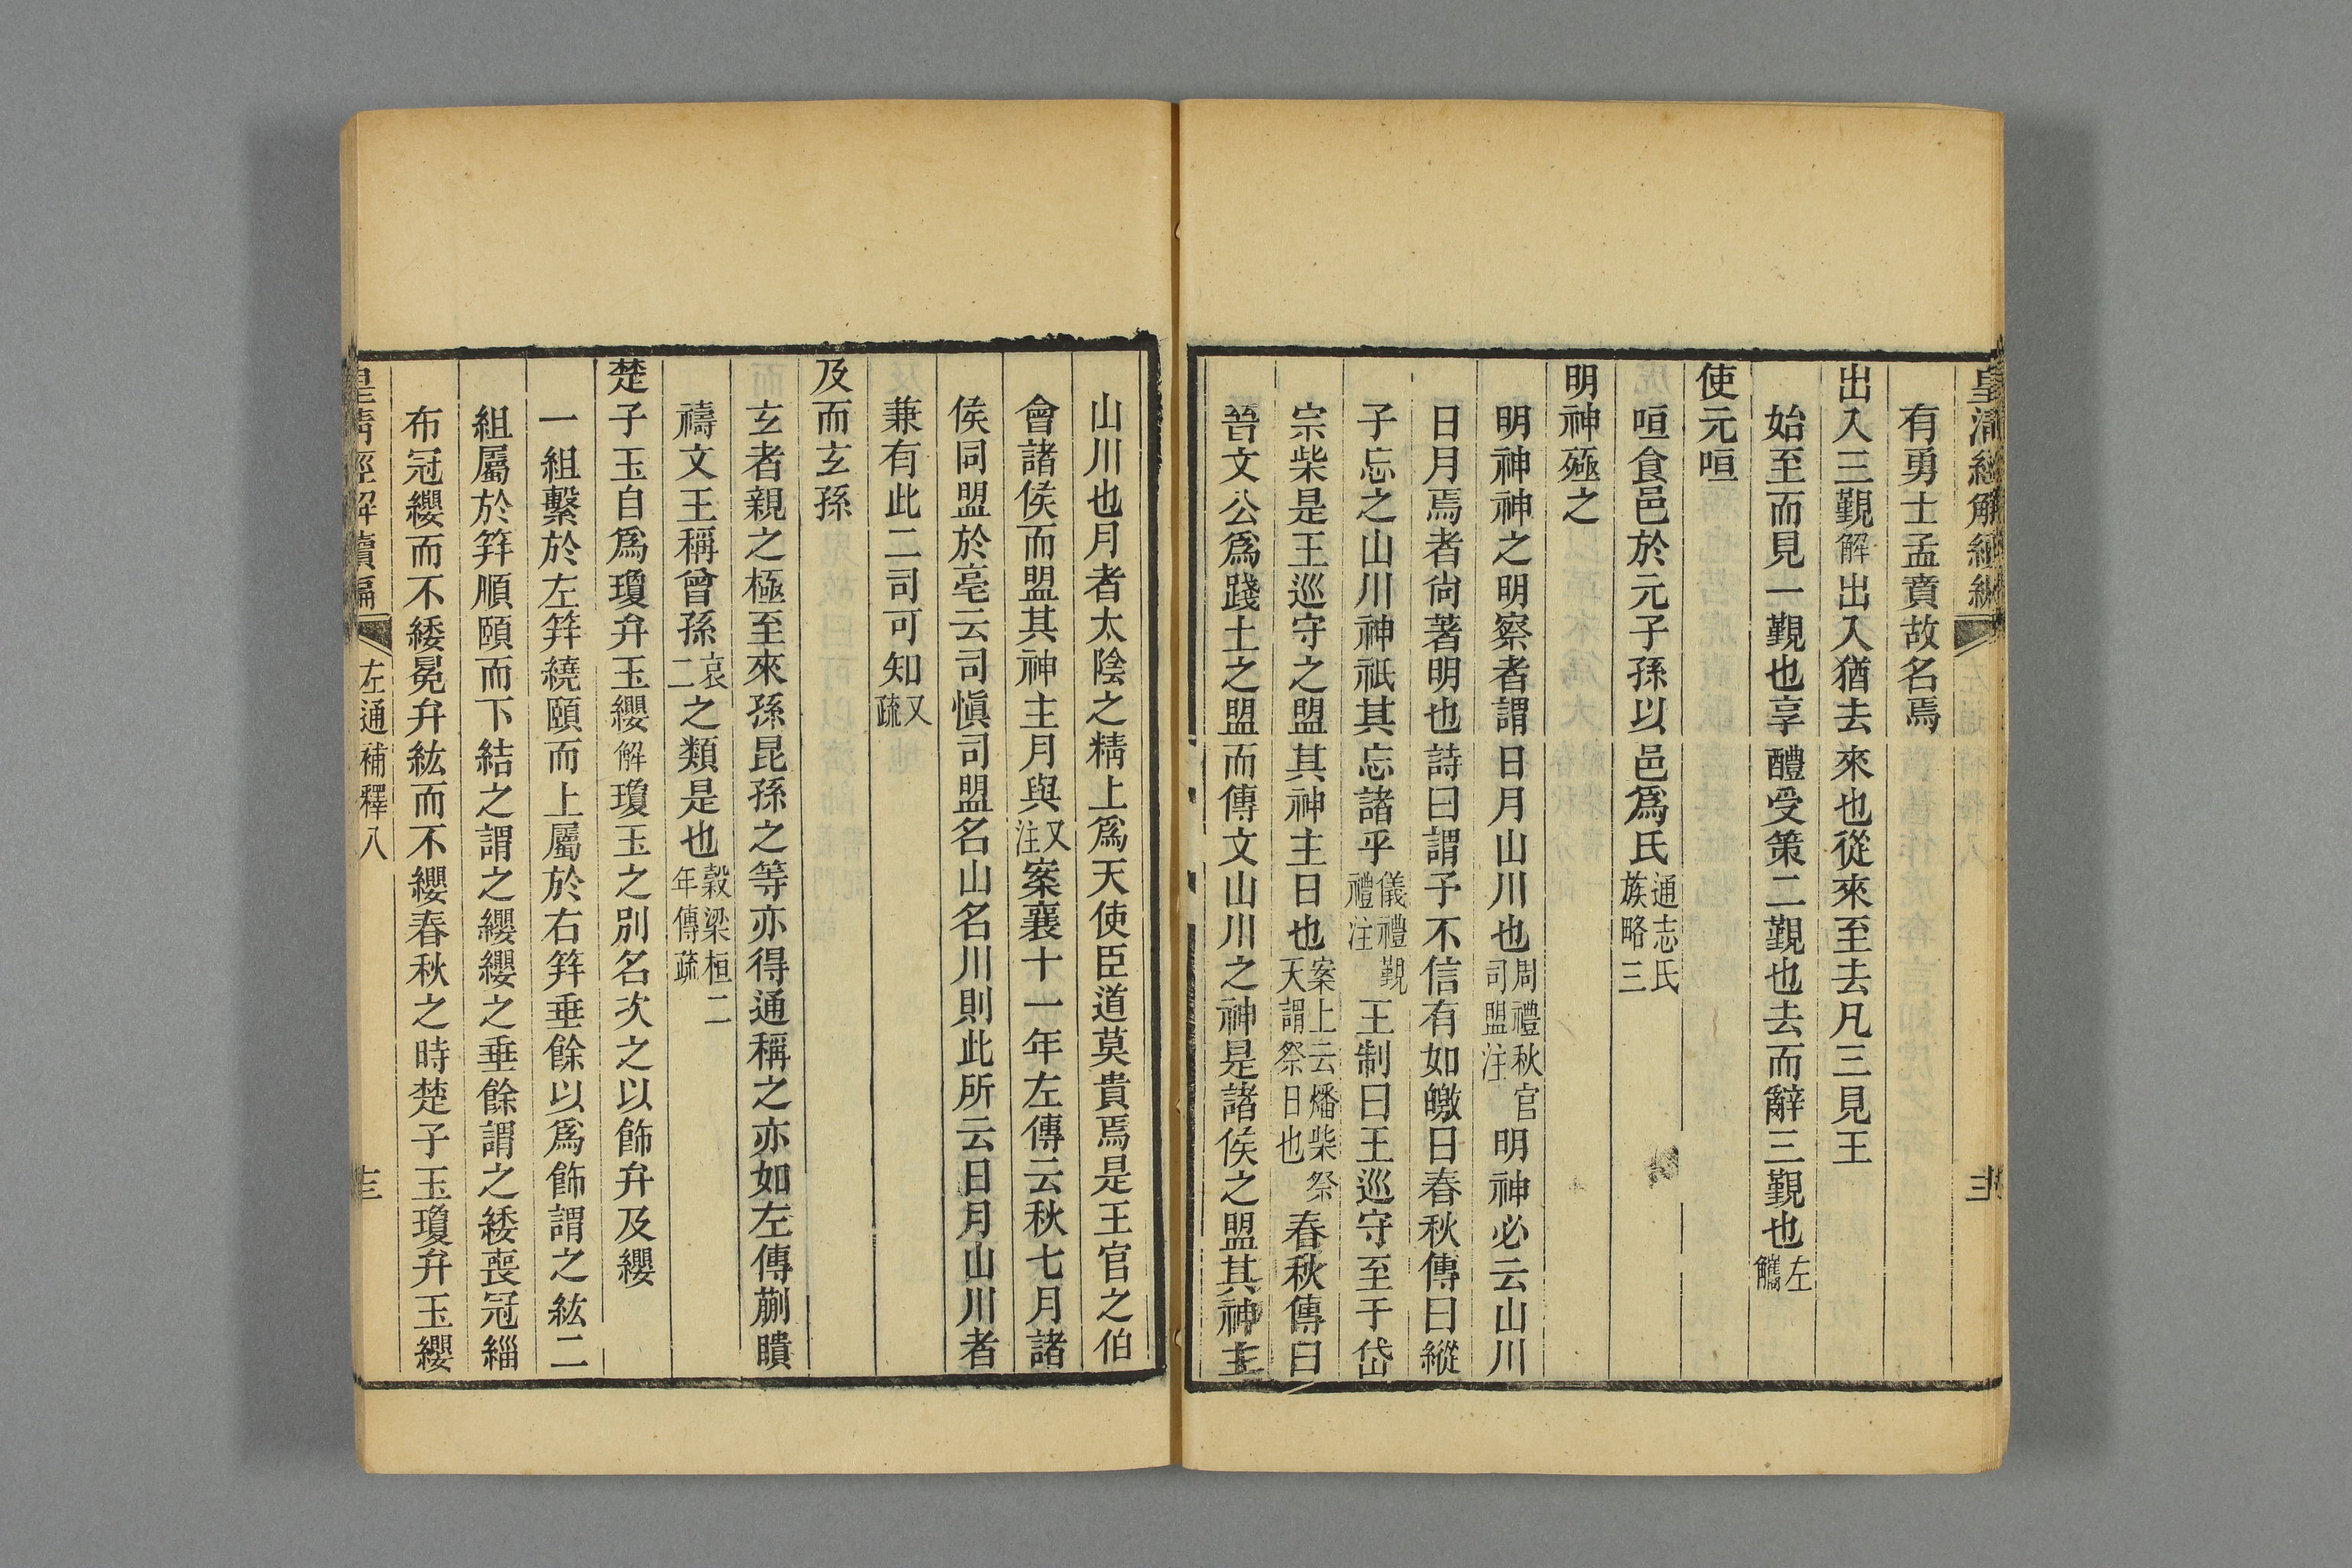 皇清經解續編
有勇士孟賁故名焉
出入三覲解出入猶去來也從來至去凡三見王
始至而見一覲也享醴受策二覲也去而辭三覲也左觿
使元咺
咺食邑於元子孫以邑爲氏通志氏族略三
明神殛之
明神神之明察者謂日月山川也周禮秋官司盟注明神必云山川
日月焉者尙著明也詩曰謂予不信有如皦日春秋傳曰縱
子忘之山川神祇其忘諸乎儀禮覲禮注王制曰王巡守至于岱
宗柴是王巡守之盟其神主日也案上云燔柴祭天謂祭日也春秋傳曰
晉文公爲踐土之盟而傳文山川之神是諸侯之盟其神主
山川也月者太陰之精上爲天使臣道莫貴焉是王官之伯
會諸侯而盟其神主月與又注案襄十一年左傳云秋七月諸
侯同盟於亳云司愼司盟名山名川則此所云日月山川者
兼有此二司可知又疏
及而玄孫
玄者親之極至來孫昆孫之等亦得通稱之亦如左傳蒯聵
禱文王稱曾孫哀二之類是也穀梁桓二年傳疏
楚子玉自爲瓊弁玉纓解瓊玉之別名次之以飾弁及纓
一組繫於左笄繞頤而上屬於右笄垂餘以爲飾謂之紘二
組屬於笄順頤而下結之謂之纓纓之垂餘謂之緌喪冠緇
布冠纓而不緌冕弁紘而不纓春秋之時楚子玉瓊弁玉纓
皇清經解續編 左通補釋八